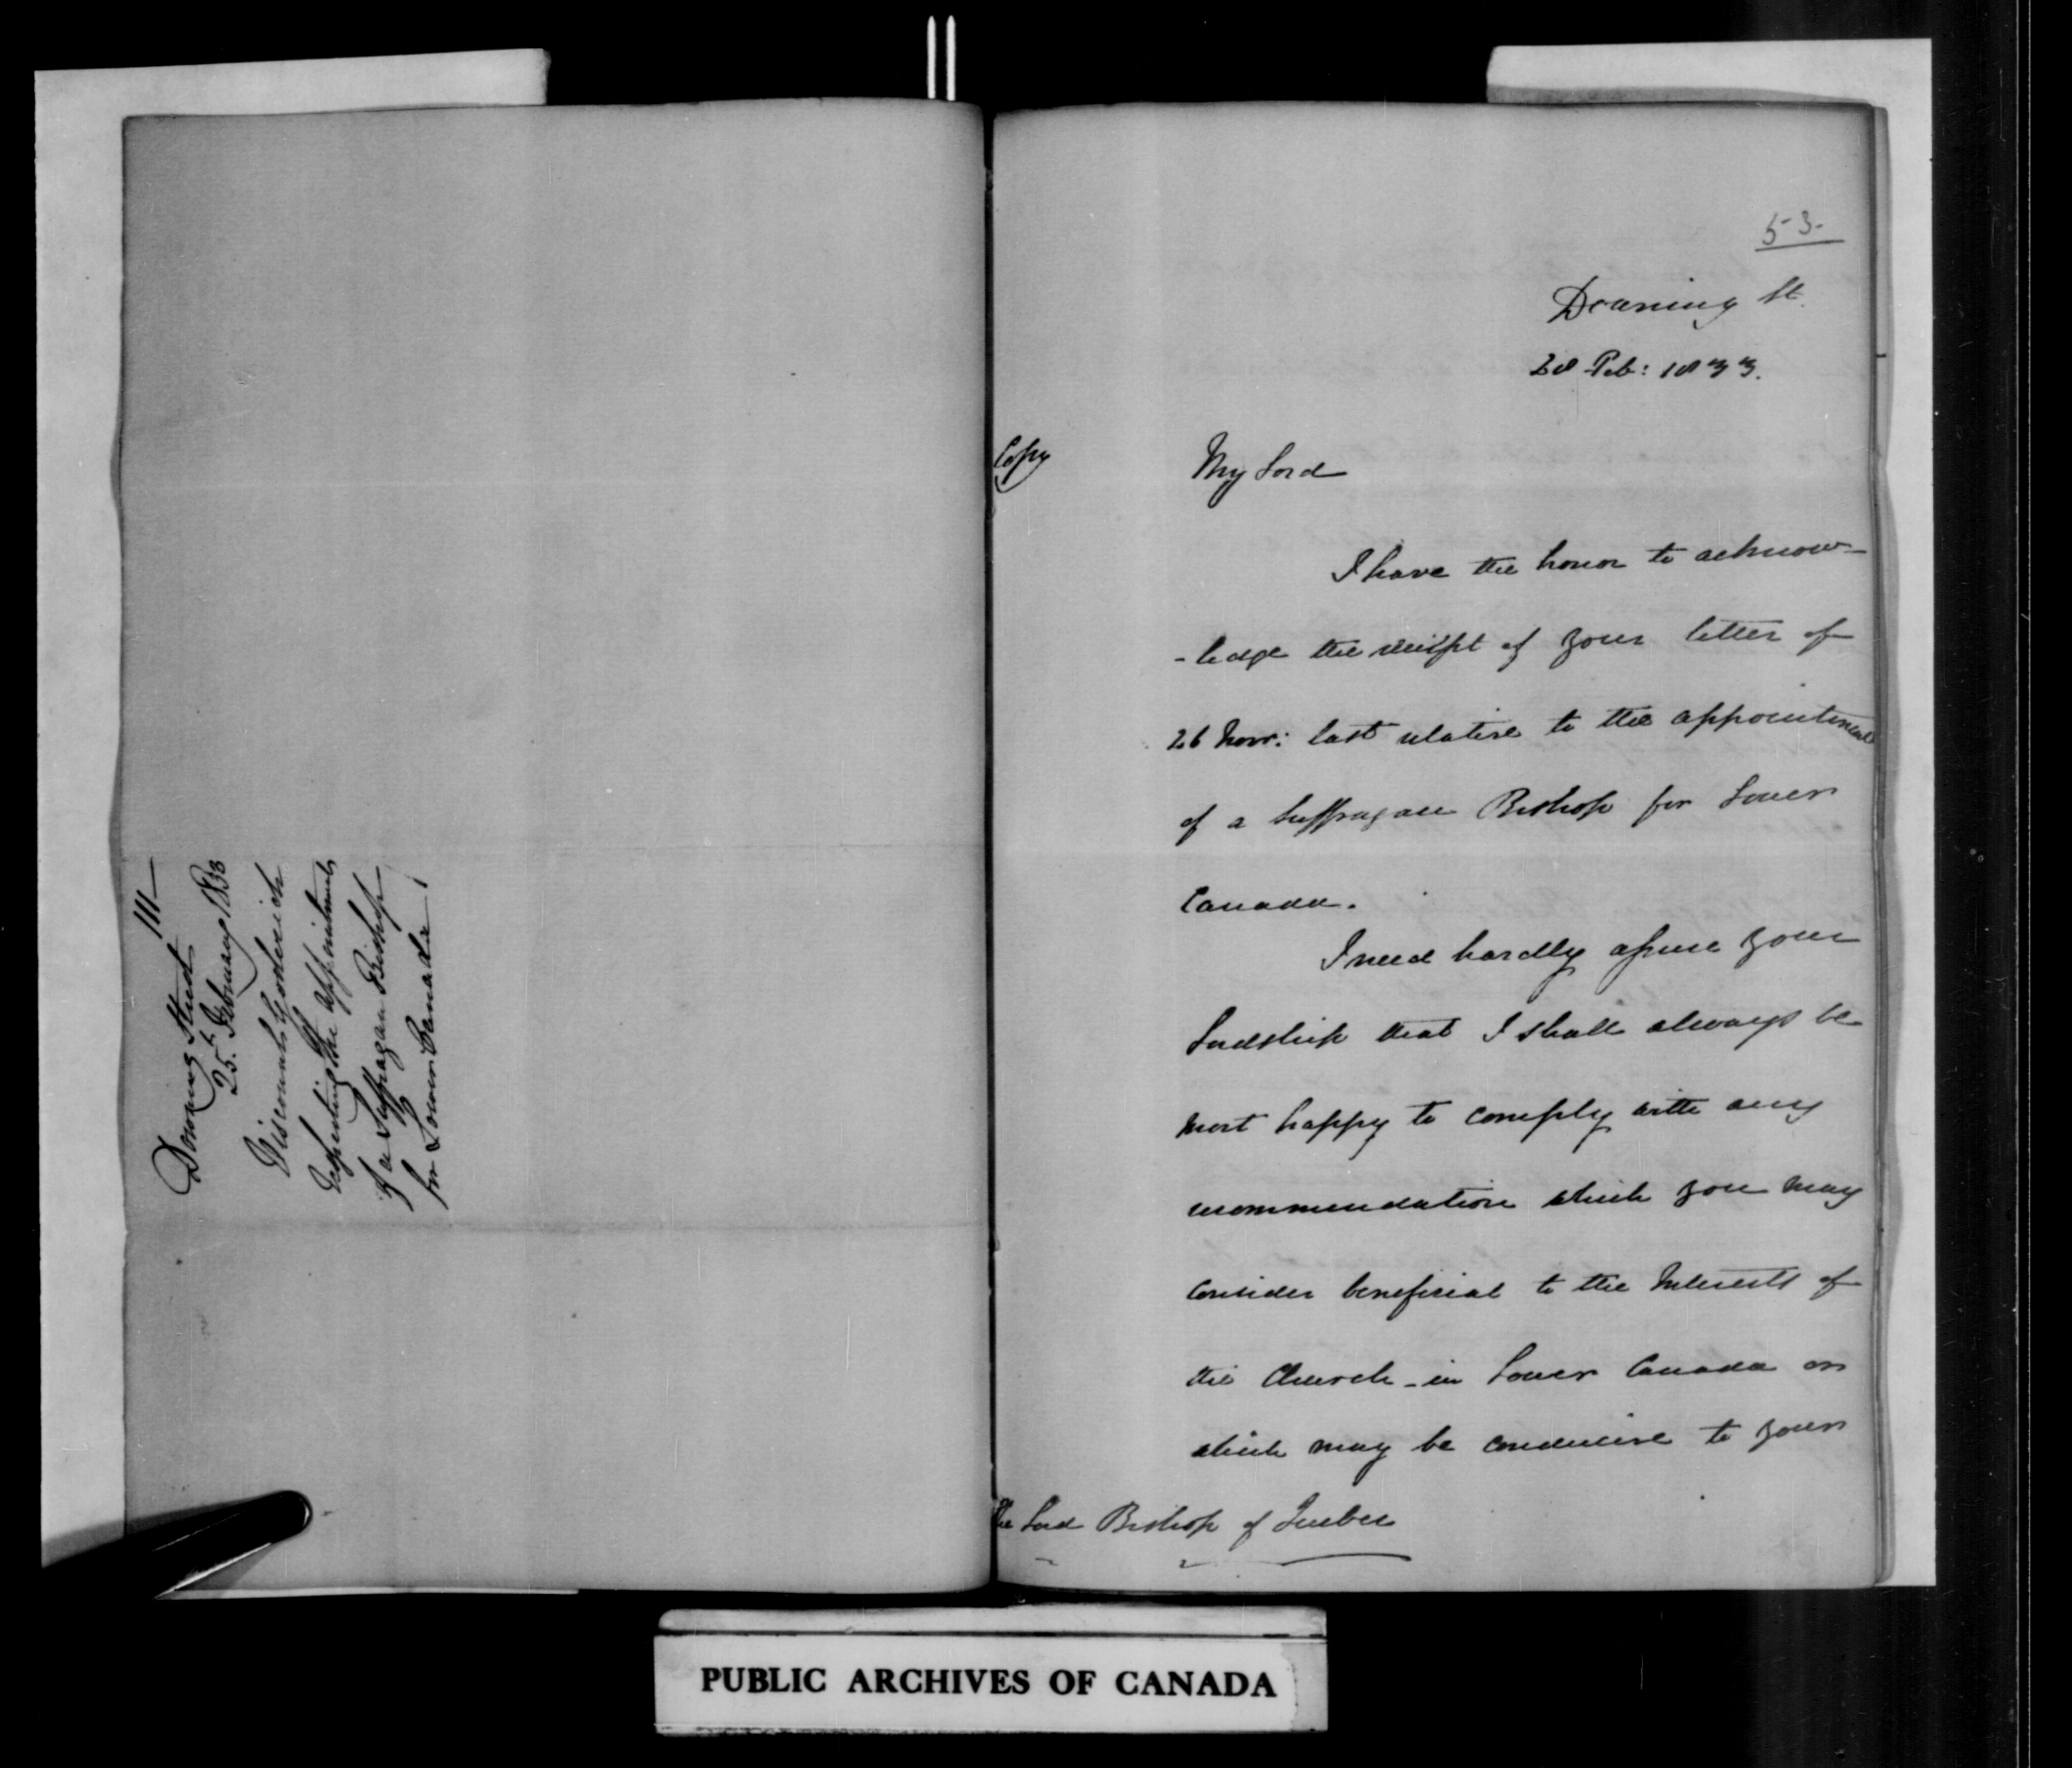 111
Downing Street
25.th February 1833
Viscount Goderich
Respecting the appointment
of a Suffragan Bishop
for Lower Canada
53.
Downing St.
28 Feb: 1833.
Copy
My Lord
I have the honor to acknow-
-ledge the receipt of your letter of
26 Novr: last relative to the appointment
of a Suffragan Bishop for Lower
Canada.
I need hardly assure your
Lordship that I shall always be
most happy to comply with any
recommendation which you may
consider beneficial to the Interests of
the Church in Lower Canada or
which may be conducive to your
The Lord Bishop of Quebec
PUBLIC ARCHIVES OF CANADA